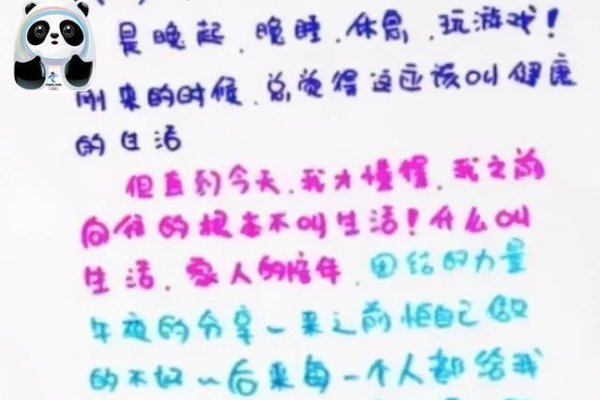 是晚起、晚睡、休息、玩游戏!
刚来的时候、总觉得这应该叫健康
的生活
但直到今天、我才懂得、我之前
向往的根本不叫生活!什么叫
生活、家人的陪伴、团结的力量
午夜的分享一来之前怕自己做
的不好一后来每一个人都给我